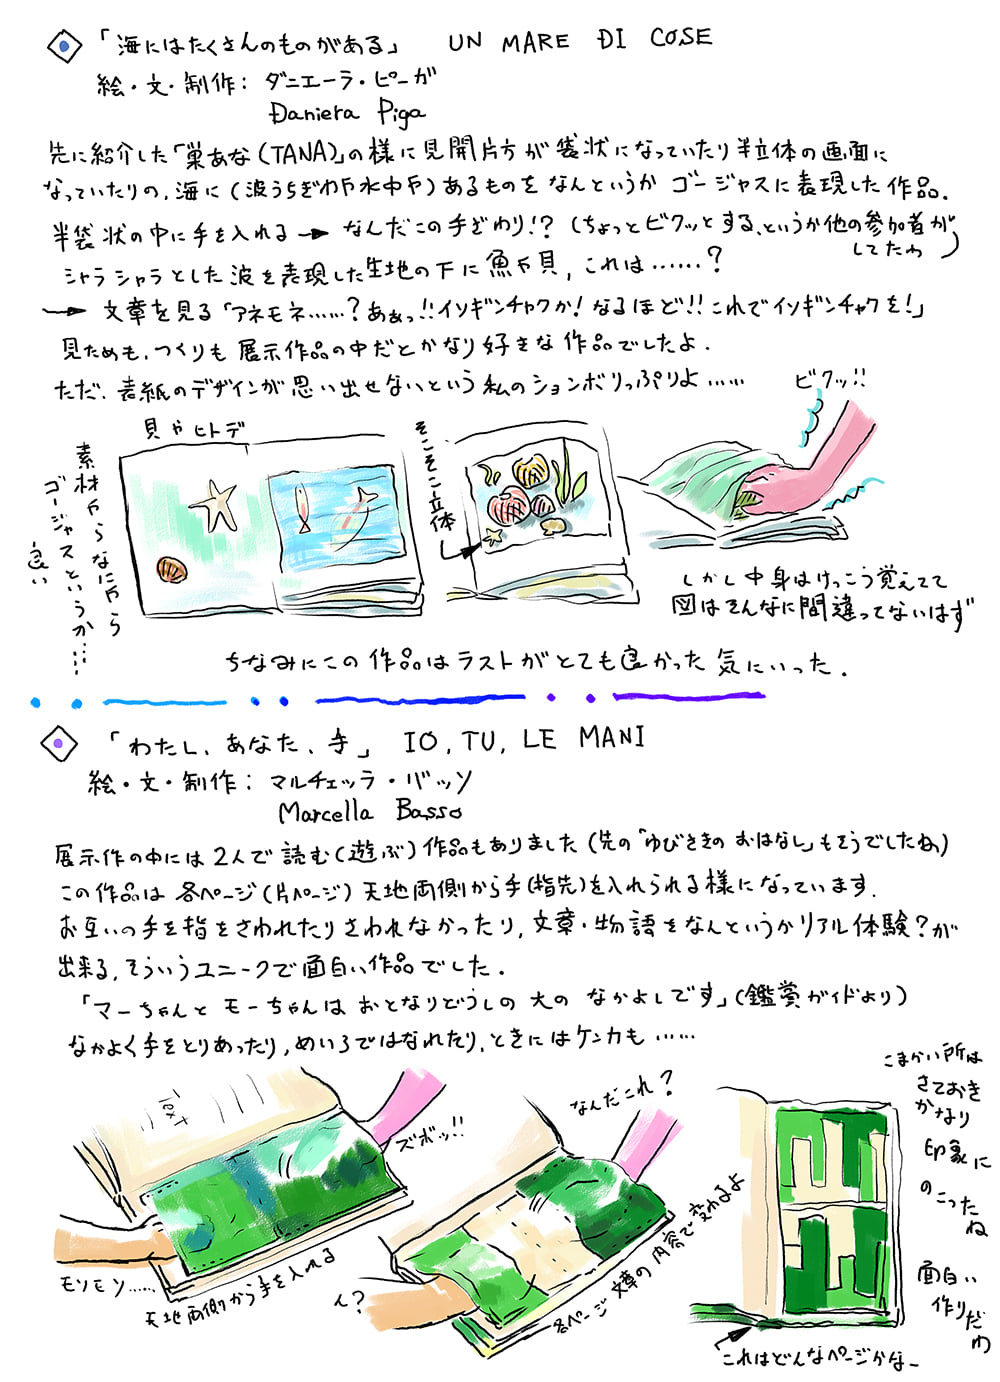 「海にはたくさんのものがある」 UN MARE DI COSE
絵・文・制作：ダニエーラ・ピーガ
Daniera Piga
先に紹介した「巣あな(TANA)」の様に見開片方が袋状になっていたり半立体の画面に
なっていたりの、海に(波うちぎわや水中や)あるものをなんというか ゴージャスに表現した作品.
半袋状の中に手を入れる→なんだこの手ざわり!? (ちょっとビクッとする、というか他の参加者が
してたわ)
シャラシャラとした波を表現した生地の下に魚や貝, これは……?
→ 文章を見る「アネモネ……?あぁっ!!イソギンチャクか!なるほど!!これでイソギンチャクを!」
見ためも、つくりも展示作品の中だとかなり好きな作品でしたよ.
ただ、表紙のデザインが思い出せないという私のションボリっぷりよ……
ビクッ!!
貝やヒトデ
そこそこ立体
素材やらなにやら
ゴージャスというか……
良い
しかし中身はけっこう覚えてて
図はそんなに間違ってないはず
ちなみにこの作品はラストがとても良かった気にいった.
「わたし、あなた、手」 IO, TU, LE MANI
絵・文・制作：マルチェッラ・バッソ
Marcella Basso
展示作の中には2人で読む(遊ぶ)作品もありました(先の「ゆびさきのおはなし」もそうでしたね)
この作品は各ページ(片ページ)天地両側から手(指先)を入れられる様になっています.
お互いの手を指をさわれたりさわれなかったり, 文章・物語をなんというかリアル体験?が
出来る, そういうユニークで面白い作品でした.
「マーちゃんとモーちゃんはおとなりどうしの大のなかよしです」(鑑賞ガイドより)
なかよく手をとりあったり, めいろではなれたり, ときにはケンカも……
Text
ズボッ!!
モソモソ……
天地両側から手を入れる
なんだこれ?
イ?
各ページ 文章の内容で変わるよ
こまかい所は
さておき
かなり
印象に
のこった
ね
面白い
作りだ
わ
これはどんなページかなー